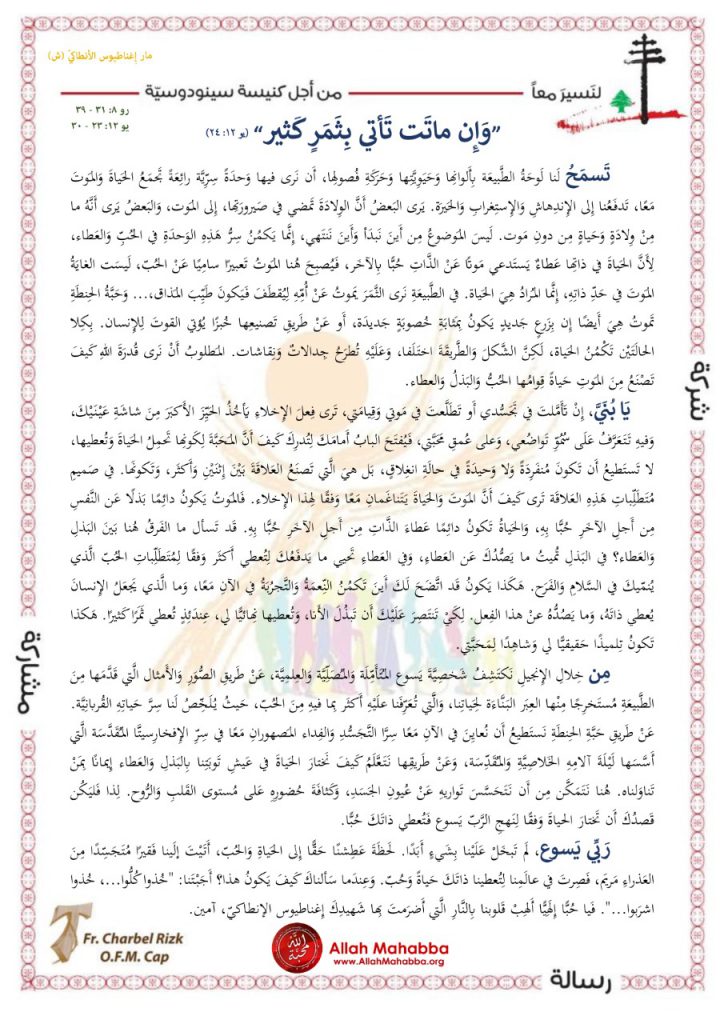 مار إغناطيوس الأنطاكيّ (ش)
لنَسيرَ معاً
من أجل كنيسة سينودوسيّة
رو ٨: ٣١ - ٣٩
يو ١٢: ٢٣ - ٣٠
”وَإِن ماتَت تَأتي بِثَمَرٍ كَثير“ (يو ١٢: ٢٤)
تَسمَحُ لَنا لَوحَةُ الطَّبيعَة بِأَلوانِها وَحَيَوِيَّتِها وَحَرَكَةِ فُصولِها، أَن نَرى فيها وَحدَةً سِرِّيَّة رائِعَةً تَجمَعُ الحَياةَ وَالمَوتَ
مَعًا، تَدفَعُنا إِلى الإِندِهاشِ وَالإِستِغرابِ وَالحَيرَة. يَرى البَعضُ أَنَّ الوِلادَةَ تَمضي في صَيرورَتِها، إِلى المَوت، وَالبَعضُ يَرى أَنَّهُ ما
مِنْ وِلادَةٍ وَحَياةٍ مِن دونِ مَوت. لَيسَ المَوضوعُ مِن أَينَ نَبدَأُ وَأَينَ نَنتَهي، إِنَّما يَكمُنُ سِرُّ هَذِهِ الوَحدَةِ في الحُبِّ وَالعَطاء،
لِأَنَّ الحَياةَ في ذاتِها عَطاءٌ يَستَدعي مَوتًا عَنْ الذَّاتِ حُبًّا بِالآخَر، فَيُصبِحَ هُنا المَوتُ تَعبيرًا سامِيًا عَنْ الحُبّ، لَيسَت الغايَةُ
المَوتَ في حَدِّ ذاتِهِ، إِنَّما المُرادُ هِيَ الحَياة. في الطَّبيعَةِ نَرى الثَّمَرَ يَموتُ عَنْ أُمِّهِ لِيُقطَفَ فَيَكونَ طَيِّبَ المَذاق،... وَحَبَّةُ الحِنطَةِ
تَموتُ هِيَ أَيضًا إِن بِزَرعٍ جَديدٍ يَكونُ بِمَثابَةِ خُصوبَةٍ جَديدَة، أَو عَنْ طَريقِ تَصنيعِها خُبزًا يُؤتي القوتَ لِلإِنسان. بِكِلا
الحالَتَيْنِ تَكْمُنُ الحَياة، لَكِنَّ الشَّكلَ وَالطَّريقَةَ اختَلَفا، وَعَلَيْهِ تُطرَحُ جِدالاتٌ وَنِقاشات. المَطلوبُ أَنْ نَرى قُدرَةَ اللهِ كَيفَ
تَصْنَعُ مِنَ المَوتِ حَياةً قِوامُها الحُبُّ وَالبَذلُ وَالعطاء.
يَا بُنَيَّ، إِنْ تَأَمَّلتَ في تَجَسُّدي أَو تَطَلَّعتَ في مَوتي وَقِيامَتي، تَرى فِعلَ الإِخلاءِ يَأخُذُ الحَيِّزَ الأَكبَرَ مِنَ شاشَةِ عَيْنَيْكَ،
وَفيهِ تَتَعَرَّفُ عَلَى سُمُوِّ تَواضُعي، وَعلى عُمقِ مَحَبَّتي، فَيُفتَحَ البابُ أَمامَكَ لِتُدرِكَ كَيفَ أَنَّ المَحَبَّةَ لِكَونِها تَحمِلُ الحَياةَ وَتُعطيها،
لا تَستَطيعُ أَن تَكونَ مُنفَرِدَةً وَلا وَحيدَةً في حالَةِ انغِلاقٍ، بل هيَ الَّتي تَصنَعُ العَلاقَةَ بَيْنَ إِثنَيْنِ وَأَكثَر، وَتُكَوِّنُها. في صَميمِ
مُتَطَلِّباتِ هَذِهِ العَلاقَة تَرى كَيفَ أَنَّ المَوتَ وَالحَياةَ يَتَناغَمانِ مَعًا وَفقًا لِهذا الإِخلاء. فَالمَوتُ يَكونُ دائِمًا بَذلًا عَنْ النَّفسِ
مِن أَجلِ الآخَرِ حُبًّا بِهِ، وَالحَياةُ تَكونُ دائِمًا عَطاءَ الذَّاتِ مِن أَجلِ الآخَرِ حُبًّا بِهِ. قَد تَسأل ما الفَرقُ هُنا بَينَ البَذلِ
وَالعَطاء؟ في البَذلِ تُميتُ ما يَصُدُّكَ عَن العَطاءِ، وَفي العَطاءِ تُحيي ما يَدفَعُكَ لِتُعطي أَكثَرَ وَفقًا لِمُتَطَلِّباتِ الحُبّ الَّذي
يُنَمّيكَ في السَّلامِ وَالفَرَح. هَكَذا يَكونُ قَد اتَّضَحَ لَكَ أَينَ تَكمُنُ النِّعمَةُ وَالتَّجرُبَةُ في الآنِ مَعًا، وَما الَّذي يَجعَلُ الإِنسانَ
يُعطي ذاتَهُ، وَما يَصُدُّهُ عَنْ هذا الفِعل. لِكَيْ تَنتَصِرَ عَلَيْكَ أَن تَبذُلَ الأَنا، وَتُعطيها نِهائِيًّا لي، عِندَئِذٍ تُعطي ثَمَرًا كَثيرًا. هَكَذا
تَكونُ تِلميذًا حَقيقِيًّا لي وَشاهِدًا لِمَحَبَّتي.
مِن خِلالِ الإِنجيلِ نَكتَشِفُ شَخصِيَّةَ يَسوعَ المُتَأَمِّلَةَ وَالمُصَلِّيَةَ وَالعِلمِيَّة، عَنْ طَريقِ الصُّوَرِ وَالأَمثالِ الَّتي قَدَّمَها مِنَ
الطَّبيعَةِ مُستَخرِجًا مِنْها العِبَرَ البَنَّاءَةَ لِحَياتِنا، وَالَّتي تُعَرِّفُنا عَلَيْهِ أَكثَرَ بِما فيهِ مِنَ الحُبّ، حَيثُ يُلَخِّصُ لَنا سِرَّ حَياتِهِ القُربانِيَّة.
عَنْ طَريقِ حَبَّةِ الحِنطَةِ نَستَطيعُ أَن نُعايِنَ في الآنِ مَعًا سِرَّا التَّجَسُّدِ وَالفِداءِ المَصهورانِ مَعًا في سِرِّ الإِفخارِستِيَّا المُقَدَّسَة الَّتي
أَسَّسَها لَيْلَةَ آلامِهِ الخَلاصِيَّةِ وَالمُقَدّسَة، وَعَنْ طَريقِها نَتَعَلَّمُ كَيفَ نَختارُ الحَياةَ في عَيشِ تَوبَتِنا بِالبَذلِ وَالعَطاءِ إيمانًا بِمَنْ
تَناوَلناه. هُنا نَتَمَكَّن مِن أَن نَتَحَسَّسَ تَوارِيه عَنْ عُيونِ الجَسَدِ، وَكَثافَةَ حُضورِهِ عَلى مُستوى القَلبِ وَالرُّوح. لِذا فَليَكُن
قَصدُكَ أَن تَختارَ الحياةَ وَفقًا لِنَهجِ الرَّبّ يَسوع فَتُعطي ذاتَكَ حُبًّا.
رَبّي يَسوع، لَم تَبخَلْ عَلَيْنا بِشَيءٍ أَبَدًا. لَحظَةَ عَطِشْنا حَقًّا إِلى الحَياةِ وَالحُبّ، أَتَيْتَ إِلَينا فَقيرًا مُتَجَسِّدًا مِنَ
العَذراءِ مَريَم، فَصِرتَ في عالَمِنا لِتُعطينا ذاتَكَ حَياةً وَحُبّ. وَعِندَما سَألناكَ كَيفَ يَكونُ هذا؟ أَجَبْتَنا: "خُذوا كُلُوا...، خُذوا
اشرَبوا...". فَيا حُبًّا إِلَهِيًّا أَلهِبْ قُلوبَنا بِالنَّارِ الَّتي أَضرَمتَ بِها شَهيدِكَ إِغناطِيوس الإِنطاكِيّ، آمين.
شركة
مشاركة
رسالة
Fr. Charbel Rizk
O.F.M. Cap
الله محبّة
Allah Mahabba
www.AllahMahabba.org